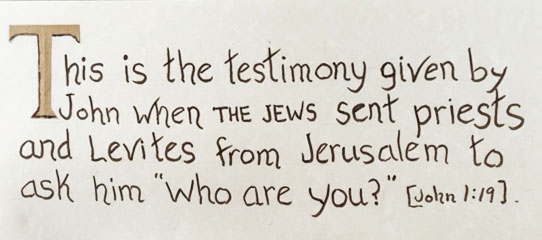 This is the testimony given by
John when THE JEWS sent priests
and Levites from Jerusalem to
ask him "Who are you?" [John 1:19].